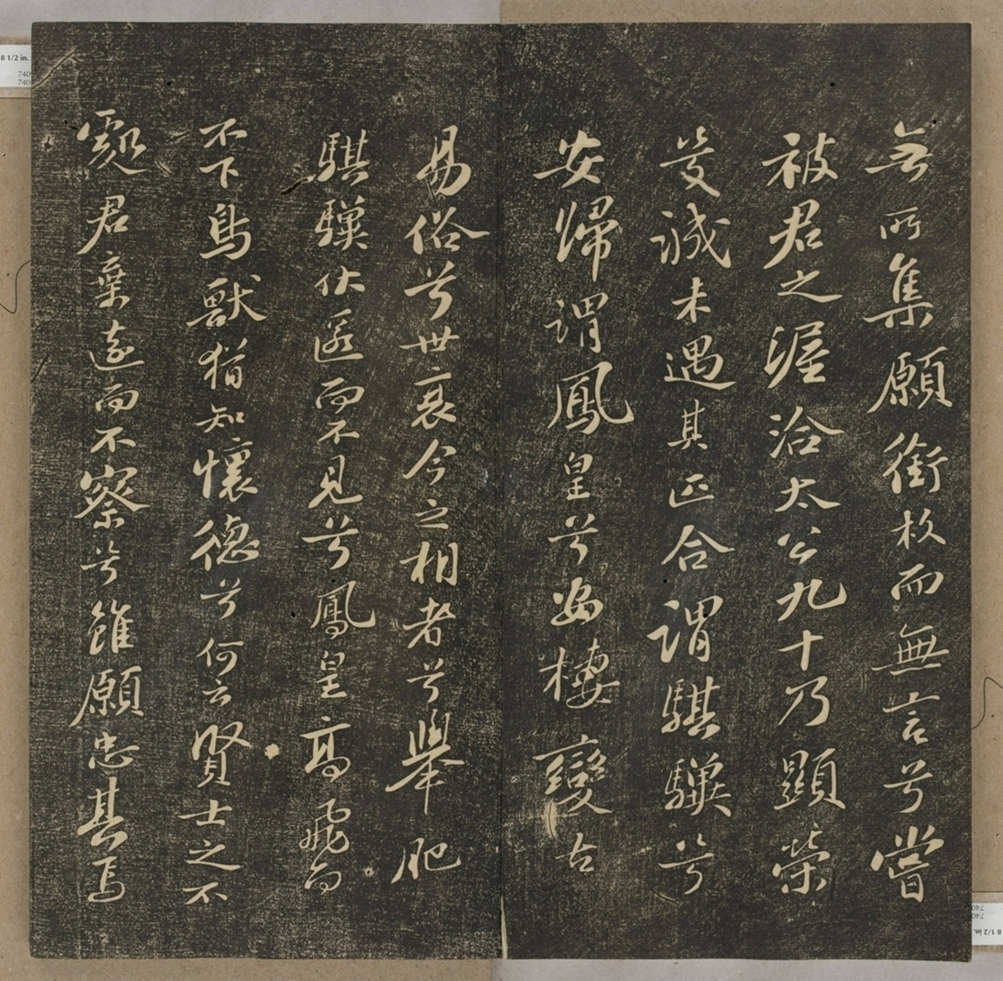 無所集願銜枚而無言兮嘗
被君之渥洽太公九十乃顯榮
兮誠未遇其匹合謂騏驥兮
安歸謂鳳皇兮安棲變古
易俗兮世衰今之相者兮舉肥
騏驥伏匿而不見兮鳳皇高飛而
不下鳥獸猶知懷德兮何云賢士之不
處君棄遠而不察兮雖願忠其焉
8 1/2 in.
8 1/2 in.